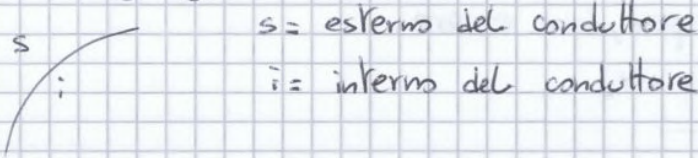 s s= esterno del conduttore
i i= interno del conduttore